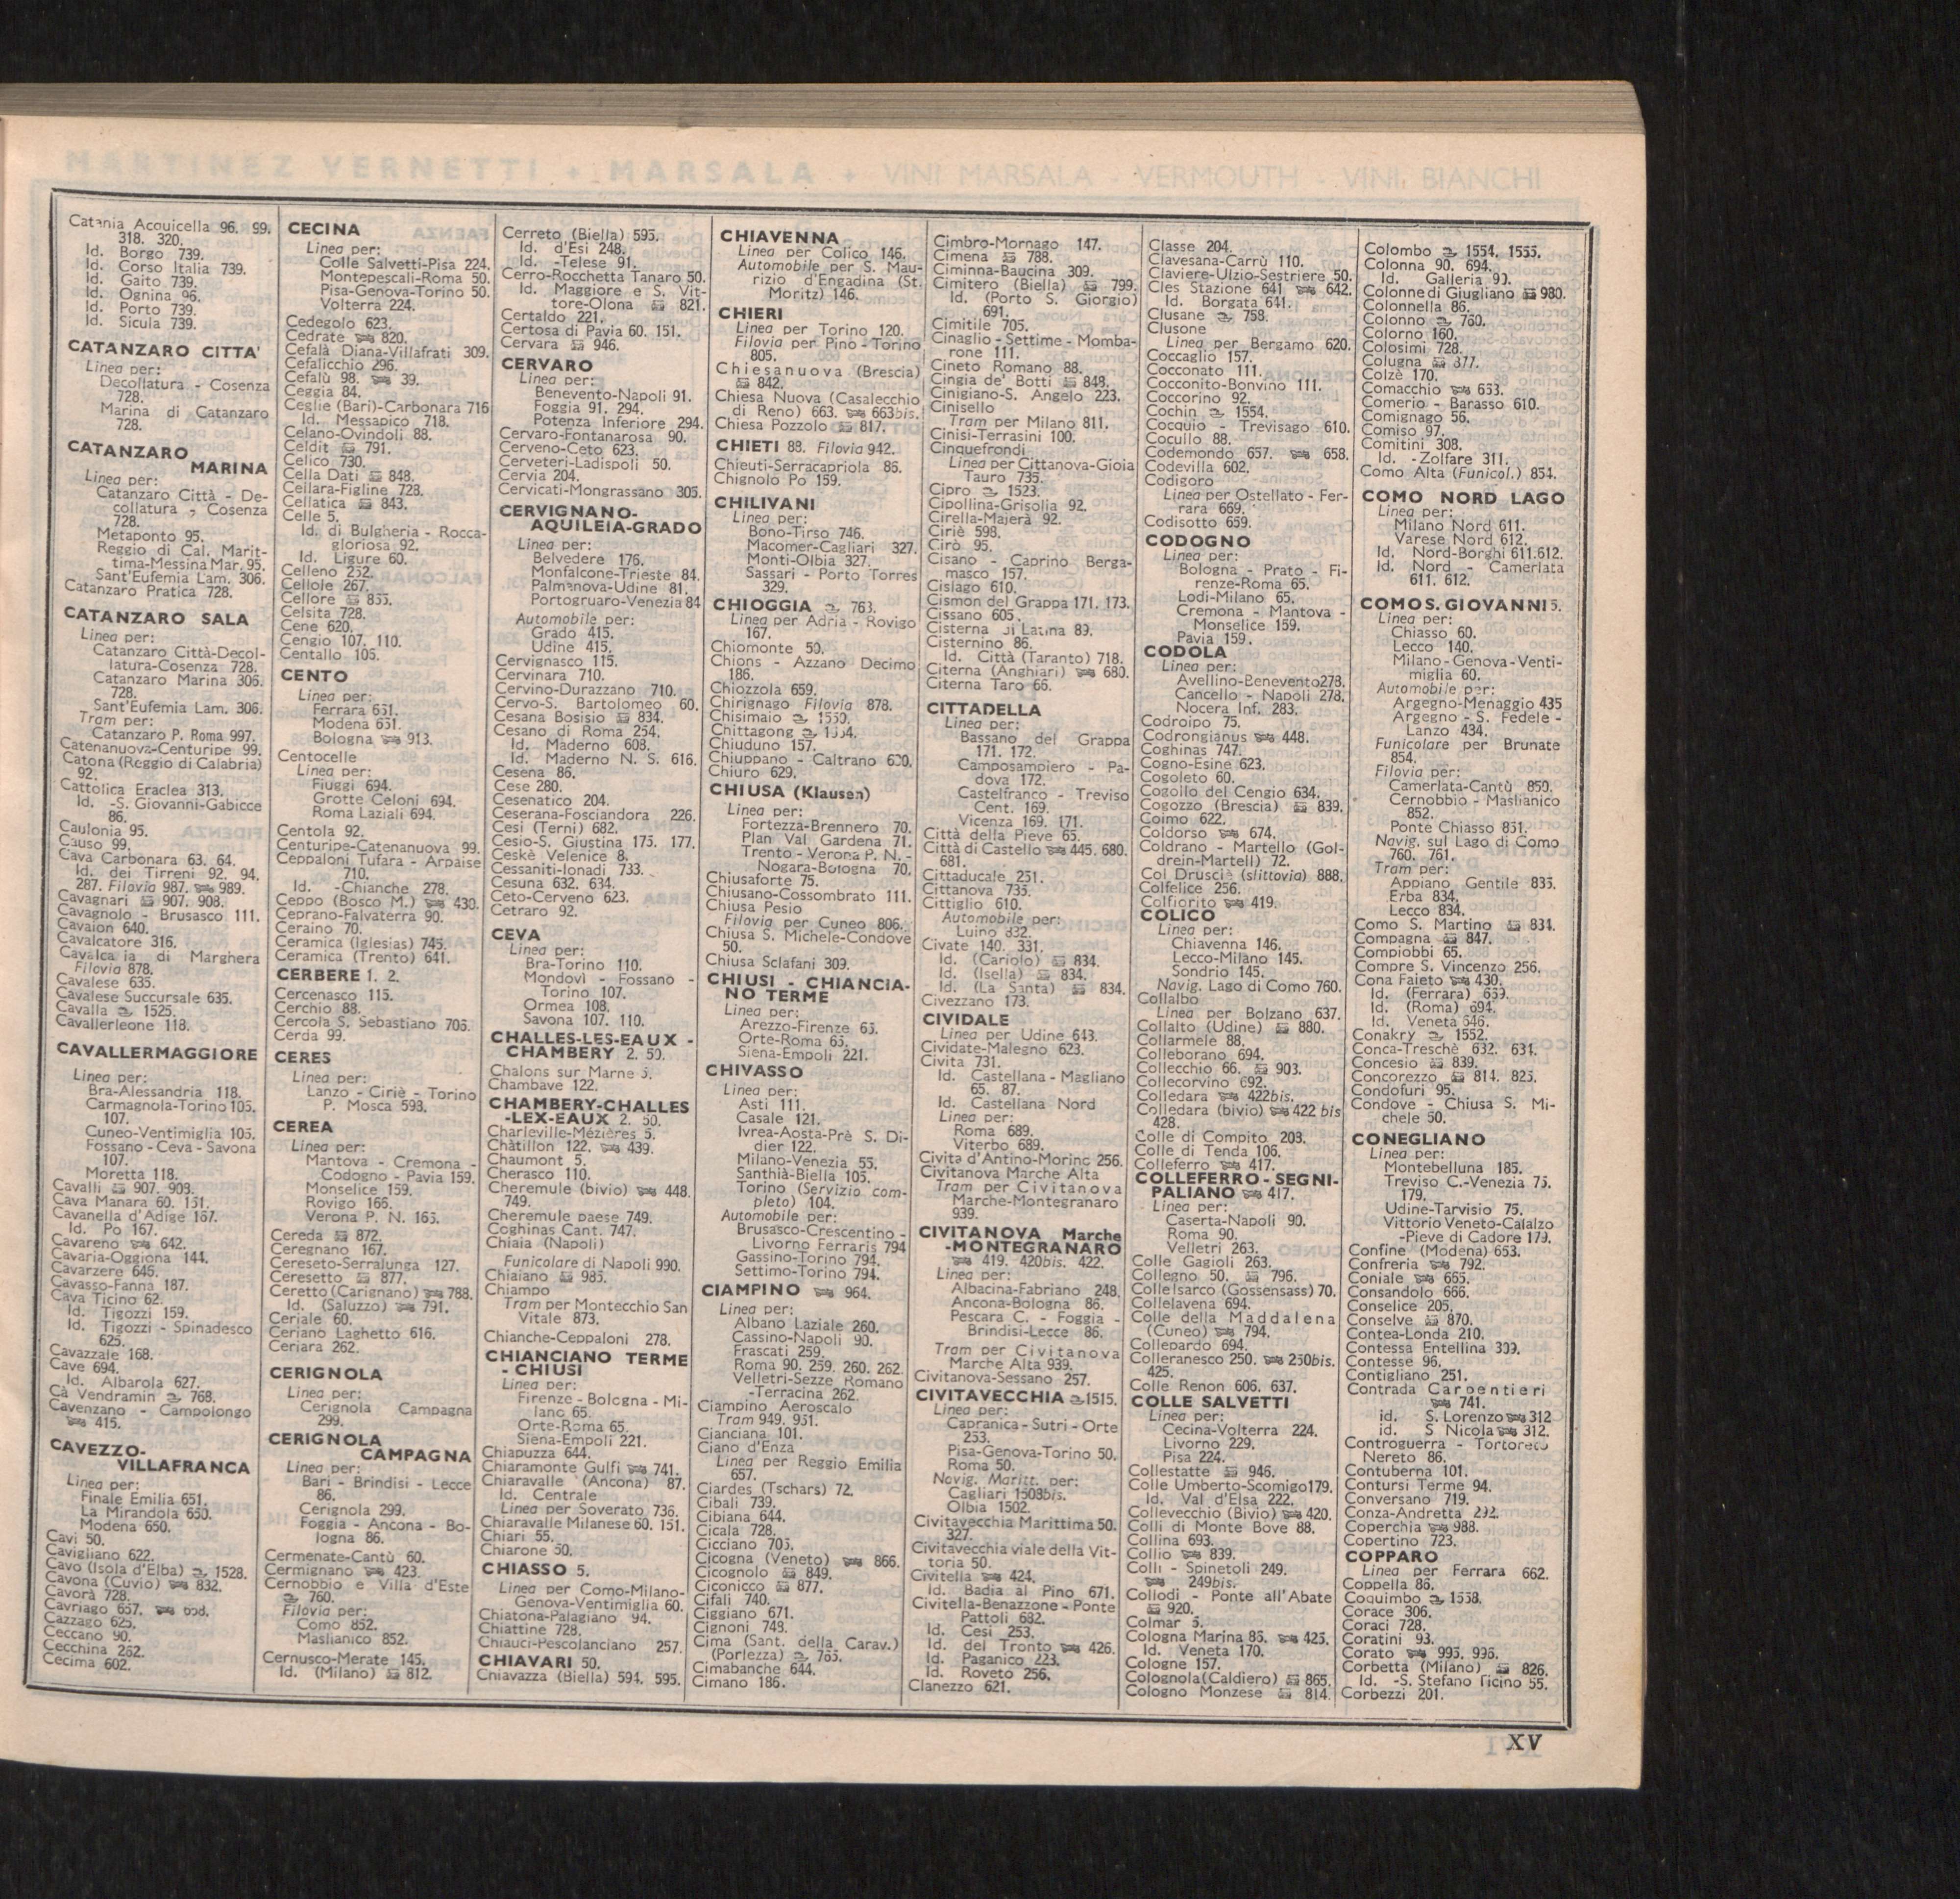 MARTINEZ VERNETTI + MARSALA + VINI MARSALA - VERMOUTH - VINI. BIANCHI
Catania Acquicella 96. 99.
318. 320.
Id. Borgo 739.
Id. Corso Italia 739.
Id. Gaito 739.
Id. Ognina 96.
Id. Porto 739.
Id. Sicula 739.
CATANZARO CITTA'
Linea per:
Decollatura - Cosenza
728.
Marina di Catanzaro
728.
CATANZARO
MARINA
Linea per:
Catanzaro Città - De-
collatura - Cosenza
728.
Metaponto 95.
Reggio di Cal. Marit-
tima-Messina Mar. 95.
Sant'Eufemia Lam. 306.
Catanzaro Pratica 728.
CATANZARO SALA
Linea per:
Catanzaro Città-Decol-
latura-Cosenza 728.
Catanzaro Marina 306.
728.
Sant'Eufemia Lam. 306.
Tram per:
Catanzaro P. Roma 997.
Catenanuova-Centuripe 99.
Catona (Reggio di Calabria)
92.
Cattolica Eraclea 313.
Id. -S. Giovanni-Gabicce
86.
Caulonia 95.
Causo 99.
Cava Carbonara 63. 64.
Id. dei Tirreni 92. 94.
287. Filovia 987. 989.
Cavagnari 907. 908.
Cavagnolo - Brusasco 111.
Cavaion 640.
Cavalcatore 316.
Cavalca ia di Marghera
Filovia 878.
Cavalese 635.
Cavalese Succursale 635.
Cavalla 1525.
Cavallerleone 118.
CAVALLERMAGGIORE
Linea per:
Bra-Alessandria 118.
Carmagnola-Torino 105.
107.
Cuneo-Ventimiglia 105.
Fossano - Ceva - Savona
107.
Moretta 118.
Cavalli 907. 908.
Cava Manara 60. 151.
Cavanella d'Adige 167.
Id. Po 167.
Cavareno 642.
Cavaria-Oggiona 144.
Cavarzere 646.
Cavasso-Fanna 187.
Cava Ticino 62.
Id. Tigozzi 159.
Id. Tigozzi - Spinadesco
625.
Cavazzale 168.
Cave 694.
Id. Albarola 627.
Cà Vendramin 768.
Cavenzano - Campolongo
415.
CAVEZZO-
VILLAFRANCA
Linea per:
Finale Emilia 651.
La Mirandola 650.
Modena 650.
Cavi 50.
Cavigliano 622.
Cavo (Isola d'Elba) 1528.
Cavona (Cuvio) 832.
Cavorà 728.
Cavriago 657.
Cazzago 625.
Ceccano 90.
Cecchina 262.
Cecima 602.
CECINA
Linea per:
Colle Salvetti-Pisa 224.
Montepescali-Roma 50.
Pisa-Genova-Torino 50.
Volterra 224.
Cedegolo 623.
Cedrate 820.
Cefalà Diana-Villafrati 309.
Cefalicchio 296.
Cefalù 98. 39.
Ceggia 84.
Ceglie (Bari)-Carbonara 716
Id. Messapico 718.
Celano-Ovindoli 88.
Celdit 791.
Celico 730.
Cella Dati 848.
Cellara-Figline 728.
Cellatica 843.
Celle 5.
Id. di Bulgheria - Rocca-
gloriosa 92.
Id. Ligure 60.
Celleno 252.
Cellole 267.
Cellore 855.
Celsita 728.
Cene 620.
Cengio 107. 110.
Centallo 105.
CENTO
Linea per:
Ferrara 651.
Modena 651.
Bologna 913.
Centocelle
Linea per:
Fiuggi 694.
Grotte Celoni 694.
Roma Laziali 694.
Centola 92.
Centuripe-Catenanuova 99.
Ceppaloni Tufara - Arpaise
710.
Id. -Chianche 278.
Ceppo (Bosco M.) 430.
Ceprano-Falvaterra 90.
Ceraino 70.
Ceramica (Iglesias) 745.
Ceramica (Trento) 641.
CERBERE 1. 2.
Cercenasco 115.
Cerchio 88.
Cercola S. Sebastiano 705.
Cerda 99.
CERES
Linea per:
Lanzo - Ciriè - Torino
P. Mosca 598.
CEREA
Linea per:
Mantova - Cremona -
Codogno - Pavia 159.
Monselice 159.
Rovigo 166.
Verona P. N. 165.
Cereda 872.
Ceregnano 167.
Cereseto-Serralunga 127.
Ceresetto 877.
Ceretto (Carignano) 788.
Id. (Saluzzo) 791.
Ceriale 60.
Ceriano Laghetto 616.
Ceriara 262.
CERIGNOLA
Linea per:
Cerignola Campagna
299.
CERIGNOLA
CAMPAGNA
Linea per:
Bari - Brindisi - Lecce
86.
Cerignola 299.
Foggia - Ancona - Bo-
logna 86.
Cermenate-Cantù 60.
Cermignano 423.
Cernobbio e Villa d'Este
760.
Filovia per:
Como 852.
Maslianico 852.
Cernusco-Merate 145.
Id. (Milano) 812.
Cerreto (Biella) 595.
Id. d'Esi 248.
Id. -Telese 91.
Cerro-Rocchetta Tanaro 50.
Id. Maggiore e S. Vit-
tore-Olona 821.
Certaldo 221.
Certosa di Pavia 60. 151.
Cervara 946.
CERVARO
Linea per:
Benevento-Napoli 91.
Foggia 91. 294.
Potenza Inferiore 294.
Cervaro-Fontanarosa 90.
Cerveno-Ceto 623.
Cerveteri-Ladispoli 50.
Cervia 204.
Cervicati-Mongrassano 305.
CERVIGNANO-
AQUILEIA-GRADO
Linea per:
Belvedere 176.
Monfalcone-Trieste 84.
Palmanova-Udine 81.
Portogruaro-Venezia 84
Automobile per:
Grado 415.
Udine 415.
Cervignasco 115.
Cervinara 710.
Cervino-Durazzano 710.
Cervo-S. Bartolomeo 60.
Cesana Bosisio 834.
Cesano di Roma 254.
Id. Maderno 608.
Id. Maderno N. S. 616.
Cesena 86.
Cese 280.
Cesenatico 204.
Ceserana-Fosciandora 226.
Cesi (Terni) 682.
Cesio-S. Giustina 175. 177.
Ceskè Velenice 8.
Cessaniti-Ionadi 733.
Cesuna 632. 634.
Ceto-Cerveno 623.
Cetraro 92.
CEVA
Linea per:
Bra-Torino 110.
Mondovì - Fossano -
Torino 107.
Ormea 108.
Savona 107. 110.
CHALLES-LES-EAUX -
CHAMBERY 2. 50.
Chalons sur Marne 5.
Chambave 122.
CHAMBERY-CHALLES
-LEX-EAUX 2. 50.
Charleville-Mézières 5.
Châtillon 122. 439.
Chaumont 5.
Cherasco 110.
Cheremule (bivio) 448.
749.
Cheremule paese 749.
Coghinas Cant. 747.
Chiaia (Napoli)
Funicolare di Napoli 990.
Chiaiano 985.
Chiampo
Tram per Montecchio San
Vitale 873.
Chianche-Ceppaloni 278.
CHIANCIANO TERME
- CHIUSI
Linea per:
Firenze - Bologna - Mi-
lano 65.
Orte-Roma 65.
Siena-Empoli 221.
Chiapuzza 644.
Chiaramonte Gulfi 741.
Chiaravalle (Ancona) 87.
Id. Centrale
Linea per Soverato 736.
Chiaravalle Milanese 60. 151.
Chiari 55.
Chiarone 50.
CHIASSO 5.
Linea per Como-Milano-
Genova-Ventimiglia 60.
Chiatona-Palagiano 94.
Chiattine 728.
Chiauci-Pescolanciano 257.
CHIAVARI 50.
Chiavazza (Biella) 594. 595.
CHIAVENNA
Linea per Colico 146.
Automobile per S. Mau-
rizio d'Engadina (St.
Moritz) 146.
CHIERI
Linea per Torino 120.
Filovia per Pino - Torino
805.
Chiesanuova (Brescia)
842.
Chiesa Nuova (Casalecchio
di Reno) 663. 663bis.
Chiesa Pozzolo 817.
CHIETI 88. Filovia 942.
Chieuti-Serracapriola 86.
Chignolo Po 159.
CHILIVANI
Linea per:
Bono-Tirso 746.
Macomer-Cagliari 327.
Monti-Olbia 327.
Sassari - Porto Torres
329.
CHIOGGIA 763.
Linea per Adria - Rovigo
167.
Chiomonte 50.
Chions - Azzano Decimo
186.
Chiozzola 659.
Chirignago Filovia 878.
Chisimaio 1550.
Chittagong
Chiuduno 157.
Chiuppano - Caltrano 630.
Chiuro 629.
CHIUSA (Klausen)
Linea per:
Fortezza-Brennero 70.
Plan Val Gardena 71.
Trento - Verona P. N. -
Nogara-Bologna 70.
Chiusaforte 75.
Chiusano-Cossombrato 111.
Chiusa Pesio
Filovia per Cuneo 806.
Chiusa S. Michele-Condove
50.
Chiusa Sclafani 309.
CHIUSI - CHIANCIA-
NO TERME
Linea per:
Arezzo-Firenze 65.
Orte-Roma 65.
Siena-Empoli 221.
CHIVASSO
Linea per:
Asti 111.
Casale 121.
Ivrea-Aosta-Prè S. Di-
dier 122.
Milano-Venezia 55.
Santhià-Biella 105.
Torino (Servizio com-
pleto) 104.
Automobile per:
Brusasco-Crescentino -
Livorno Ferraris 794
Gassino-Torino 794.
Settimo-Torino 794.
CIAMPINO 964.
Linea per:
Albano Laziale 260.
Cassino-Napoli 90.
Frascati 259.
Roma 90. 259. 260. 262
Velletri-Sezze Romano
-Terracina 262.
Ciampino Aeroscalo
Tram 949. 951.
Cianciana 101.
Ciano d'Enza
Linea per Reggio Emilia
657.
Ciardes (Tschars) 72.
Cibali 739.
Cibiana 644.
Cicala 728.
Cicciano 705.
Cicogna (Veneto) 866.
Cicognolo 849.
Ciconicco 877.
Cifali 740.
Ciggiano 671.
Cignoni 748.
Cima (Sant. della Carav.)
(Porlezza) 765.
Cimabanche 644.
Cimano 186.
Cimbro-Mornago 147.
Cimena 788.
Ciminna-Baucina 309.
Cimitero (Biella) 799.
Id. (Porto S. Giorgio)
691.
Cimitile 705.
Cinaglio - Settime - Momba-
rone 111.
Cineto Romano 88.
Cingia de' Botti 848.
Cinigiano-S. Angelo 223.
Cinisello
Tram per Milano 811.
Cinisi-Terrasini 100.
Cinquefrondi
Linea per Cittanova-Gioia
Tauro 735.
Cipro 1523.
Cipollina-Grisolia 92.
Cirella-Majerà 92.
Ciriè 598.
Cirò 95.
Cisano - Caprino Berga-
masco 157.
Cislago 610.
Cismon del Grappa 171. 173.
Cissano 605.
Cisterna di Latina 89.
Cisternino 86.
Id. Città (Taranto) 718.
Citerna (Anghiari) 680.
Citerna Taro 66.
CITTADELLA
Linea per:
Bassano del Grappa
171. 172.
Camposampiero - Pa-
dova 172.
Castelfranco - Treviso
Cent. 169.
Vicenza 169. 171.
Città della Pieve 65.
Città di Castello 445. 680.
681.
Cittaducale 251.
Cittanova 735.
Cittiglio 610.
Automobile per:
Luino 832.
Civate 140. 331.
Id. (Cariolo) 834.
Id. (Isella) 834.
Id. (La Santa) 834.
Civezzano 173.
CIVIDALE
Linea per Udine 643.
Cividate-Malegno 623.
Civita 731.
Id. Castellana - Magliano
65. 87.
Id. Castellana Nord
Linea per:
Roma 689.
Viterbo 689.
Civita d'Antino-Morino 256.
Civitanova Marche Alta
Tram per Civitanova
Marche-Montegranaro
939.
CIVITANOVA Marche
-MONTEGRANARO
419. 420bis. 422.
Linea per:
Albacina-Fabriano 248.
Ancona-Bologna 86.
Pescara C. - Foggia -
Brindisi-Lecce 86.
Tram per Civitanova
Marche Alta 939.
Civitanova-Sessano 257.
CIVITAVECCHIA 1515.
Linea per:
Capranica - Sutri - Orte
253.
Pisa-Genova-Torino 50.
Roma 50.
Navig. Maritt. per:
Cagliari 1508bis.
Olbia 1502.
Civitavecchia Marittima 50.
327.
Civitavecchia viale della Vit-
toria 50.
Civitella 424.
Id. Badia al Pino 671.
Civitella-Benazzone - Ponte
Pattoli 682.
Id. Cesi 253.
Id. del Tronto 426.
Id. Paganico 223.
Id. Roveto 256.
Clanezzo 621.
Classe 204.
Clavesana-Carrù 110.
Claviere-Ulzio-Sestriere 50.
Cles Stazione 641 642.
Id. Borgata 641.
Clusane 758.
Clusone
Linea per Bergamo 620.
Coccaglio 157.
Cocconato 111.
Cocconito-Bonvino 111.
Coccorino 92.
Cochin 1554.
Cocquio - Trevisago 610.
Cocullo 88.
Codemondo 657. 658.
Codevilla 602.
Codigoro
Linea per Ostellato - Fer-
rara 669.
Codisotto 659.
CODOGNO
Linea per:
Bologna - Prato - Fi-
renze-Roma 65.
Lodi-Milano 65.
Cremona - Mantova -
Monselice 159.
Pavia 159.
CODOLA
Linea per:
Avellino-Benevento278.
Cancello - Napoli 278.
Nocera Inf. 283.
Codroipo 75.
Codrongianus 448.
Coghinas 747.
Cogno-Esine 623.
Cogoleto 60.
Cogollo del Cengio 634.
Cogozzo (Brescia) 839.
Coimo 622.
Coldorso 674.
Coldrano - Martello (Gol-
drein-Martell) 72.
Col Druscié (slittovia) 888.
Colfelice 256.
Colfiorito 419.
COLICO
Linea per:
Chiavenna 146.
Lecco-Milano 145.
Sondrio 145.
Navig. Lago di Como 760.
Collalbo
Linea per Bolzano 637.
Collalto (Udine) 880.
Collarmele 88.
Colleborano 694.
Collecchio 66. 903.
Collecorvino 692.
Colledara 422bis.
Colledara (bivio) 422 bis
428.
Colle di Compito 208.
Colle di Tenda 106.
Colleferro 417.
COLLEFERRO - SEGNI-
PALIANO 417.
Linea per:
Caserta-Napoli 90.
Roma 90.
Velletri 263.
Colle Gagioli 263.
Collegno 50. 796.
Collelsarco (Gossensass) 70.
Collelavena 694.
Colle della Maddalena
(Cuneo) 794.
Collepardo 694.
Colleranesco 250. 250bis.
425.
Colle Renon 606. 637.
COLLE SALVETTI
Linea per:
Cecina-Volterra 224.
Livorno 229.
Pisa 224.
Collestatte 946.
Colle Umberto-Scomigo179.
Id. Val d'Elsa 222.
Collevecchio (Bivio) 420.
Colli di Monte Bove 88.
Collina 693.
Collio 839.
Colli - Spinetoli 249.
249bis.
Collodi - Ponte all'Abate
920.
Colmar 5.
Cologna Marina 85. 425.
Id. Veneta 170.
Cologne 157.
Colognola(Caldiero) 865.
Cologno Monzese 814.
Colombo 1554. 1555.
Colonna 90. 694.
Id. Galleria 90.
Colonne di Giugliano 980.
Colonnella 86.
Colonno 760.
Colorno 160.
Colosimi 728.
Colugna 877.
Colzè 170.
Comacchio 653.
Comerio - Barasso 610.
Comignago 56.
Comiso 97.
Comitini 308.
Id. - Zolfare 311.
Como Alta (Funicol.) 854.
COMO NORD LAGO
Linea per:
Milano Nord 611.
Varese Nord 612.
Id. Nord-Borghi 611.612.
Id. Nord - Camerlata
611. 612.
COMO S. GIOVANNI 5.
Linea per:
Chiasso 60.
Lecco 140.
Milano - Genova - Venti-
miglia 60.
Automobile per:
Argegno-Menaggio 435
Argegno - S. Fedele -
Lanzo 434.
Funicolare per Brunate
854.
Filovia per:
Camerlata-Cantù 850.
Cernobbio - Maslianico
852.
Ponte Chiasso 851.
Navig. sul Lago di Como
760. 761.
Tram per:
Appiano Gentile 835.
Erba 834.
Lecco 834.
Como S. Martino 834.
Compagna 847.
Compiobbi 65.
Compre S. Vincenzo 256.
Cona Faieto 430.
Id. (Ferrara) 659.
Id. (Roma) 694.
Id. Veneta 646.
Conakry 1552.
Conca-Treschè 632. 634.
Concesio 839.
Concorezzo 814. 825.
Condofuri 95.
Condove - Chiusa S. Mi-
chele 50.
CONEGLIANO
Linea per:
Montebelluna 185.
Treviso C.-Venezia 75.
179.
Udine-Tarvisio 75.
Vittorio Veneto-Calalzo
-Pieve di Cadore 179.
Confine (Modena) 653.
Confreria 792.
Coniale 665.
Consandolo 666.
Conselice 205.
Conselve 870.
Contea-Londa 210.
Contessa Entellina 309.
Contesse 96.
Contigliano 251.
Contrada Carpentieri
741.
id. S. Lorenzo 312
id. S Nicola 312.
Controguerra - Tortoreto
Nereto 86.
Contuberna 101.
Contursi Terme 94.
Conversano 719.
Conza-Andretta 292.
Coperchia 988.
Copertino 723.
COPPARO
Linea per Ferrara 662.
Coppella 86.
Coquimbo 1558.
Corace 306.
Coraci 728.
Coratini 93.
Corato 995. 996.
Corbetta (Milano) 826.
Id. -S. Stefano Ticino 55.
Corbezzi 201.
XV